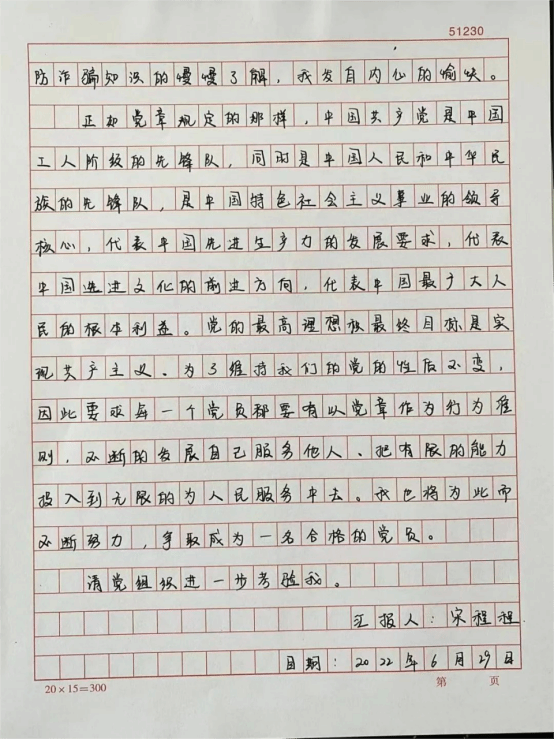 51230
防诈骗知识的慢慢了解，我发自内心的愉快。
正如党章规定的那样，中国共产党是中国
工人阶级的先锋队，同时是中国人民和中华民
族的先锋队，是中国特色社会主义事业的领导
核心，代表中国先进生产力的发展要求，代表
中国先进文化的前进方向，代表中国最广大人
民的根本利益。党的最高理想和最终目标是实
现共产主义、为了维持我们的党的性质不变，
因此要求每一个党员都要有以党章作为行为准
则，不断的发展自己服务他人、把有限的能力
投入到无限的为人民服务中去。我也将为此而
不断努力，争取成为一名合格的党员。
请党组织进一步考验我。
汇报人：宋程程
日期：2022年6月29日
20×15=300 第 页